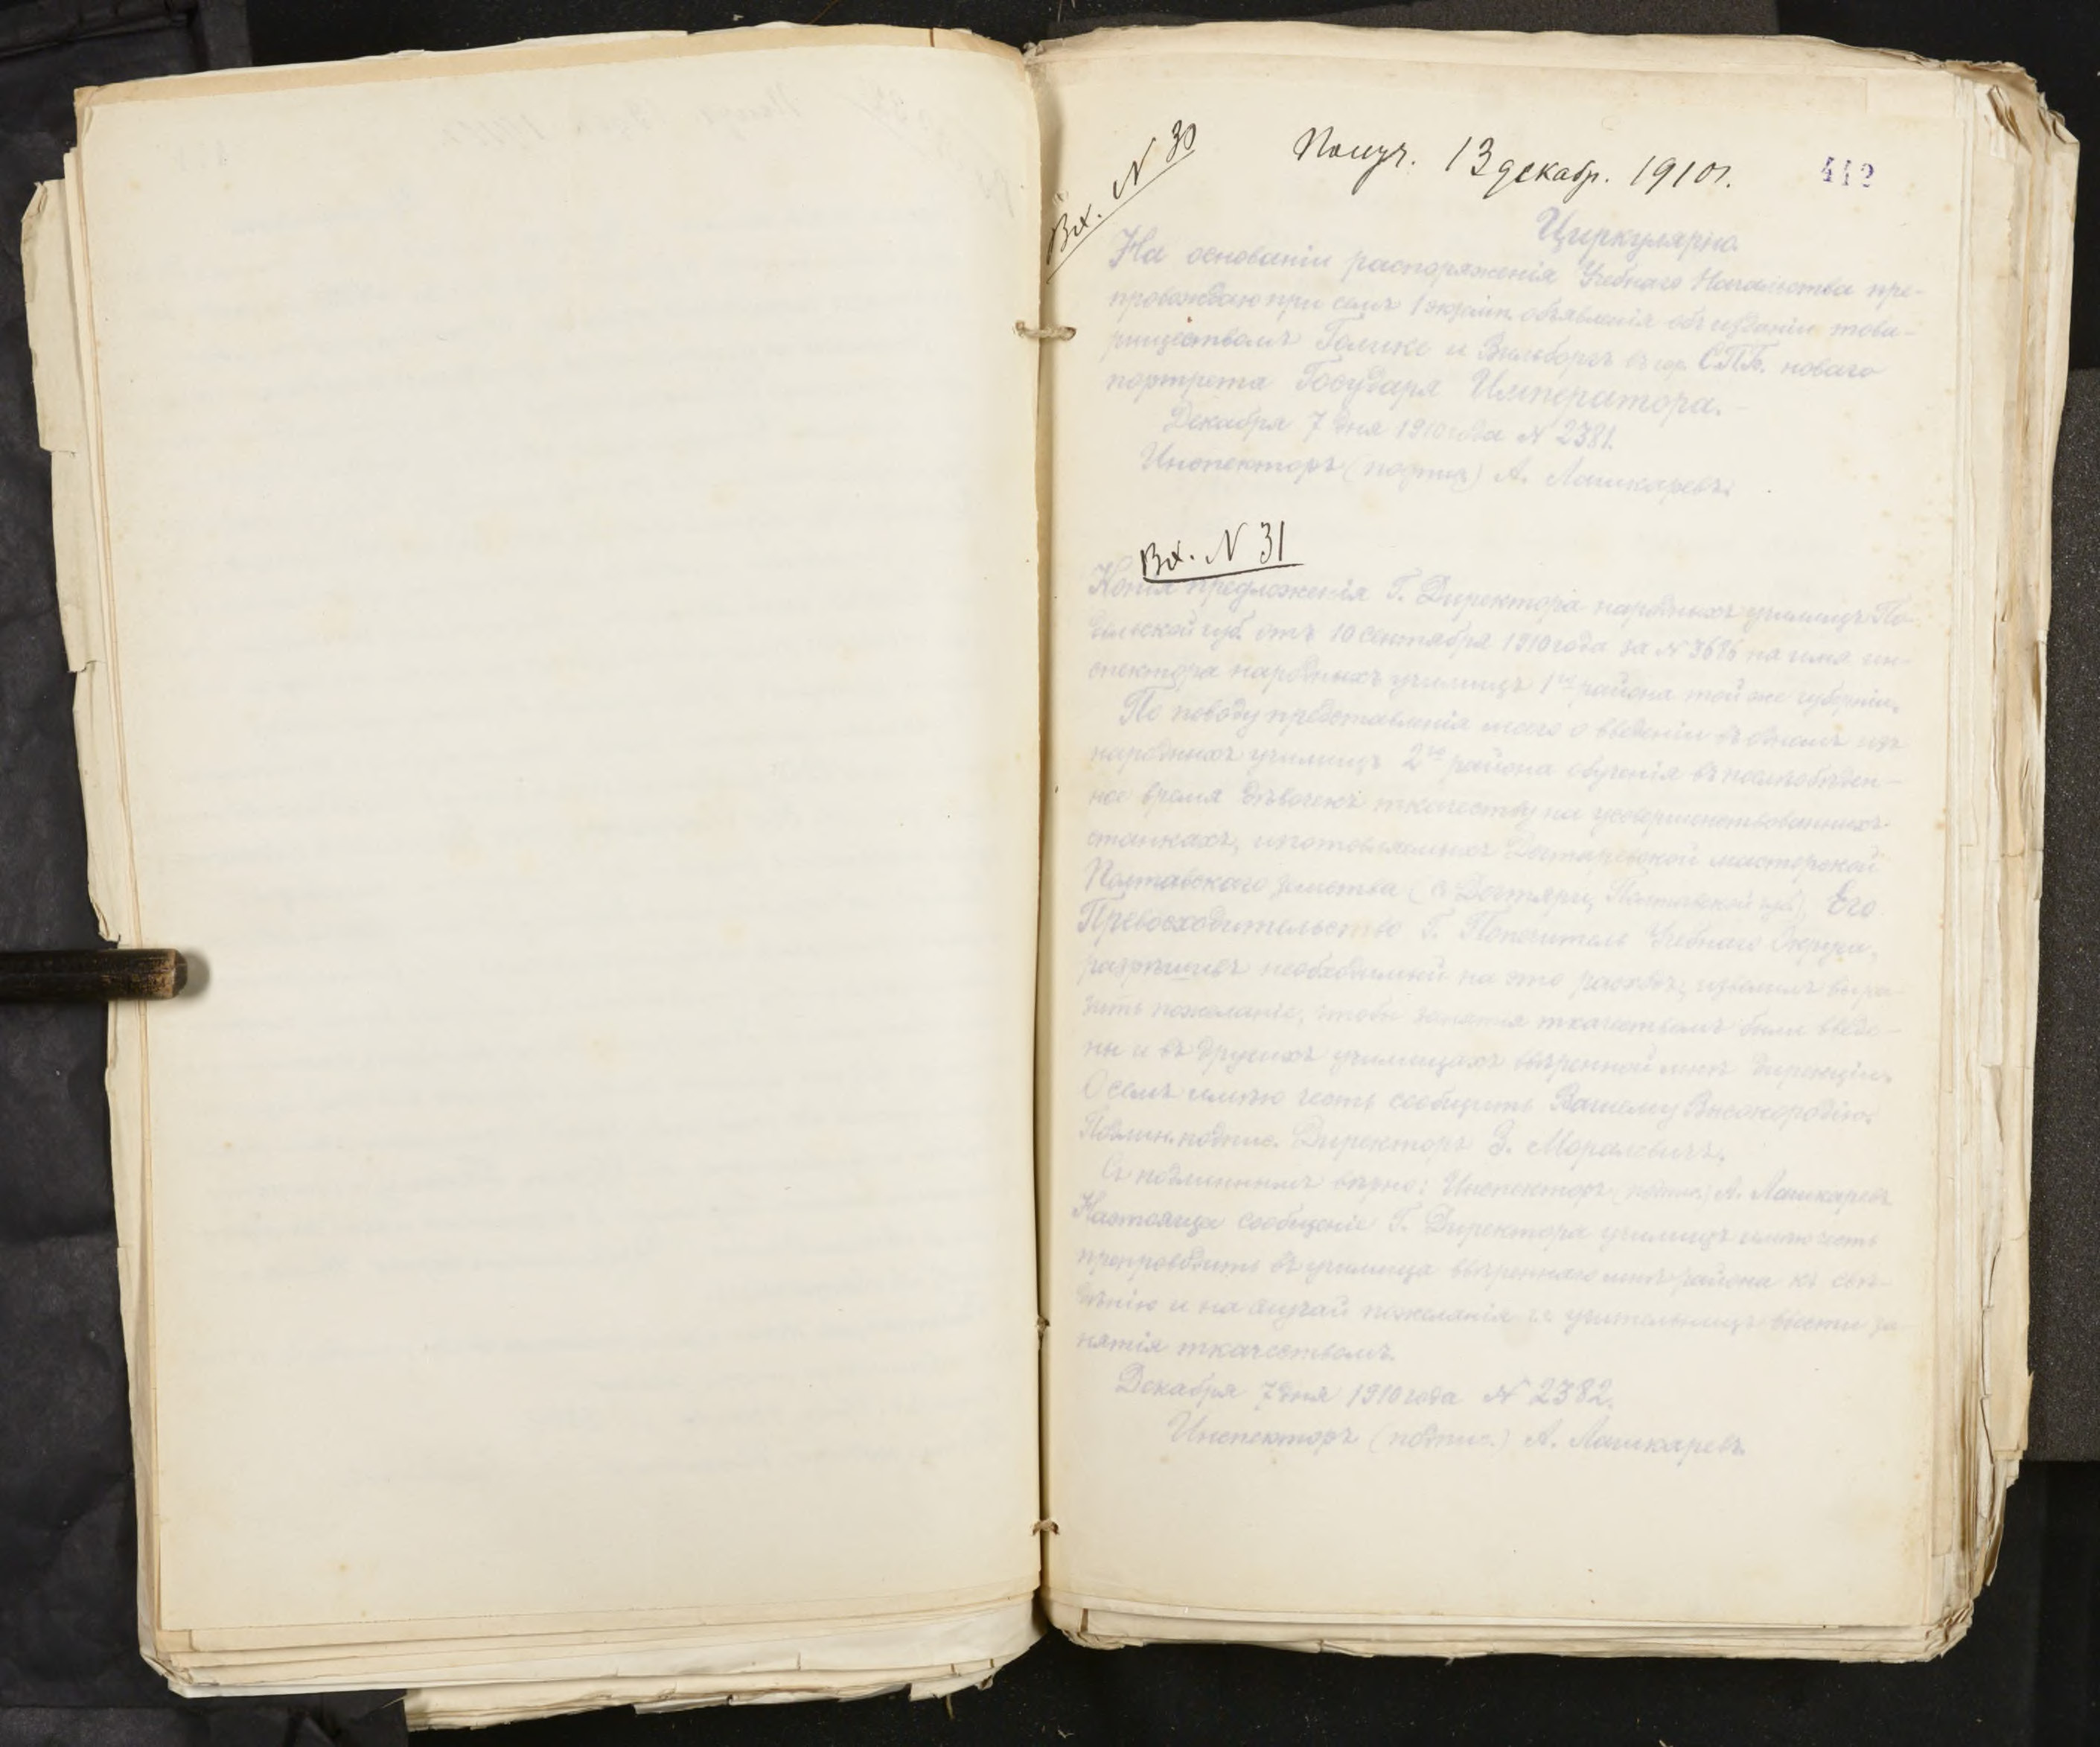 Вх. N 30
Получ. 13 декабр. 1910 г.
442
Циркулярно.
На основаніи распоряженія Учебнаго Начальства пре-
провождаю при семъ 1 экземп. объявленія объ изданіи това-
риществомъ Голике и Вильборгъ въ гор. С.П.Б. новаго
портрета Государя Императора.
Декабря 7 дня 1910 года N 2381.
Инспекторъ (подпис) А. Лашкаревъ.
Вх. N 31
Копія предложенія Г. Директора народныхъ училищъ По-
дольской губ. отъ 10 сентября 1910 года за N 3686 на имя ин-
спектора народныхъ училищъ 1го района той же губерніи.
По поводу представленія моего о введеніи въ одномъ изъ
народныхъ училищъ 2го района обученія въ послѣобѣден-
ное время дѣвочекъ ткачеству на усовершенствованныхъ
станкахъ, изготовляемыхъ Дегтяревской мастерской
Полтавскаго земства (с. Дегтяри, Полтавской губ.), Его
Превосходительство Г. Попечитель Учебнаго Округа,
разрѣшивъ необходимый на это расходъ, изволилъ выра-
зить пожеланіе, чтобы занятія ткачествомъ были введе-
ны и въ другихъ училищахъ ввѣренной мнѣ дирекціи.
О семъ имѣю честь сообщить Вашему Высокородію.
Подлин. подпис. Директоръ З. Моралевичъ.
Съ подлиннымъ вѣрно: Инспекторъ (подпис.) А. Лашкаревъ
Настояще сообщеніе Г. Директора училищъ имѣю честь
препроводить въ училища ввѣреннаго мнѣ района къ свѣ-
дѣнію и на случай пожеланія г.г. учительницъ ввести за-
нятія ткачествомъ.
Декабря 7 дня 1910 года N 2382.
Инспекторъ (подпис.) А. Лашкаревъ.